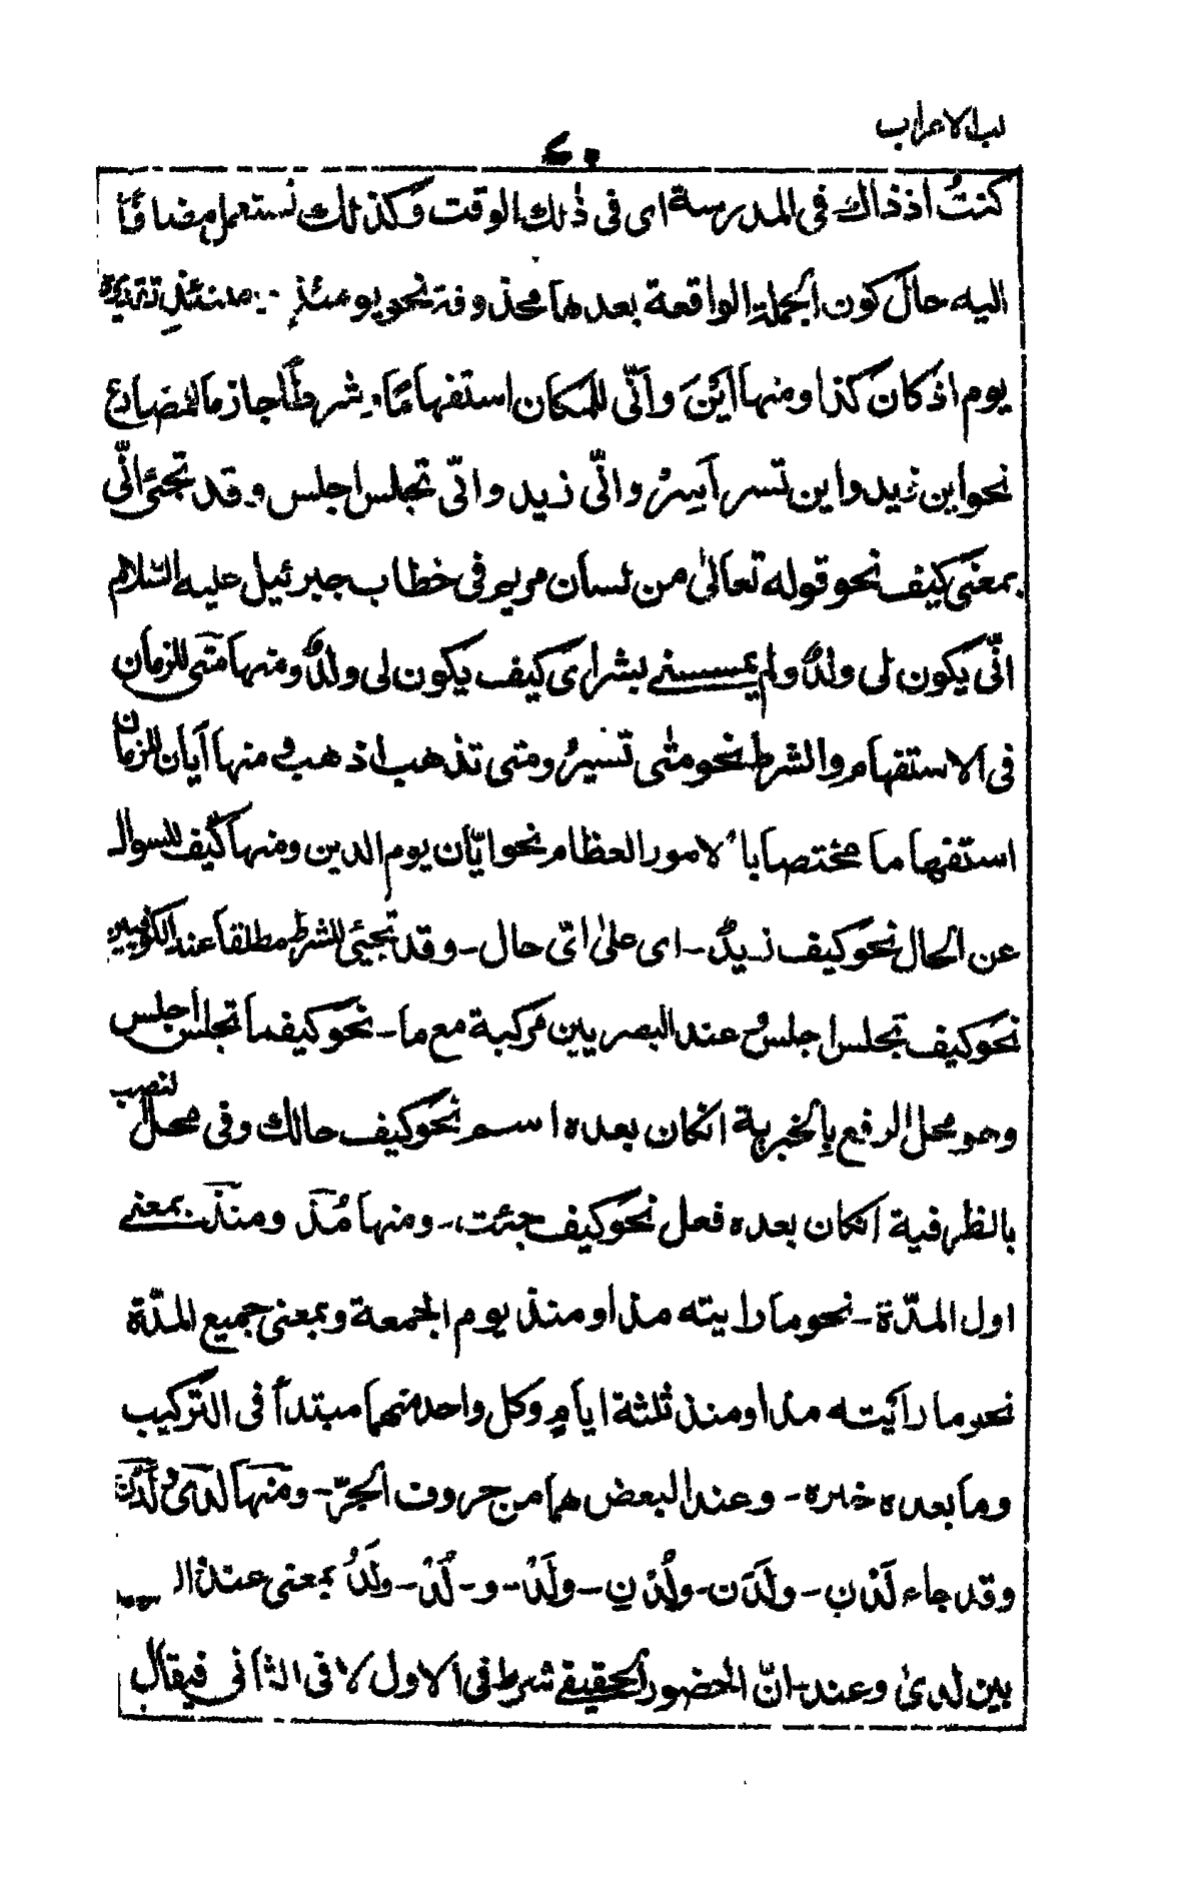 لب الاعراب
٤٠
كنتُ اذ ذاك فى المدرسة اى فى ذٰلك الوقت وكذلك تستعمل مضافًا
اليه حال كون الجملة الواقعة بعدها محذوفة نحو يومئذٍ تقديره
يوم اذ كان كذا ومنها اَيْنَ واَنّٰى للمكان استفهامًا شرطًا جازما للمضارع
نحو اين زيد واين تسر اَسِرْ وانّٰى زيد وانّى تجلس اجلس وقد تجئ انّٰى
بمعنى كيف نحو قوله تعالىٰ من لسان مريم فى خطاب جبرئيل عليه السّلام
انّٰى يكون لى ولدٌ ولم يمسسنى بشر اى كيف يكون لى ولدٌ ومنها متى للزمان
فى الاستفهام والشرط نحو متٰى تسيرُ ومتى تذهب اذهب ومنها ايّان للزمان
استفهاما مختصا بالامور العظام نحو ايّان يوم الدين ومنها كيف للسوال
عن الحال نحو كيف زيدٌ - اى علىٰ اىّ حال - وقد تجيئ للشرط مطلقا عند الكوفيين
نحو كيف تجلس اجلس و عند البصريين مركبة مع ما - نحو كيفما تجلس اجلس
وهو محل الرفع بالخبرية انكان بعده اسم نحو كيف حالك وفى محل النصب
بالظرفية انكان بعده فعل نحو كيف جئت - ومنها مُذ ومنذ بمعنى
اول المدّة - نحو ما رايته مذ او منذ يوم الجمعة وبمعنى جميع المدّة
نحو ما رأيته مذ او منذ ثلثة ايامٍ وكل واحد منهما مبتدأ فى التركيب
وما بعده خبره - وعند البعض هما من حروف الجرّ - ومنها لدىٰ و لَدُن
وقد جاء لَدْنِ - ولَدَن - ولُدْنِ - ولَدْ - و - لُدْ - ولَدُ بمعنى عند
بين لدىٰ وعند انّ الحضور الحقيقى شرط فى الاول لا فى الثانى فيقال